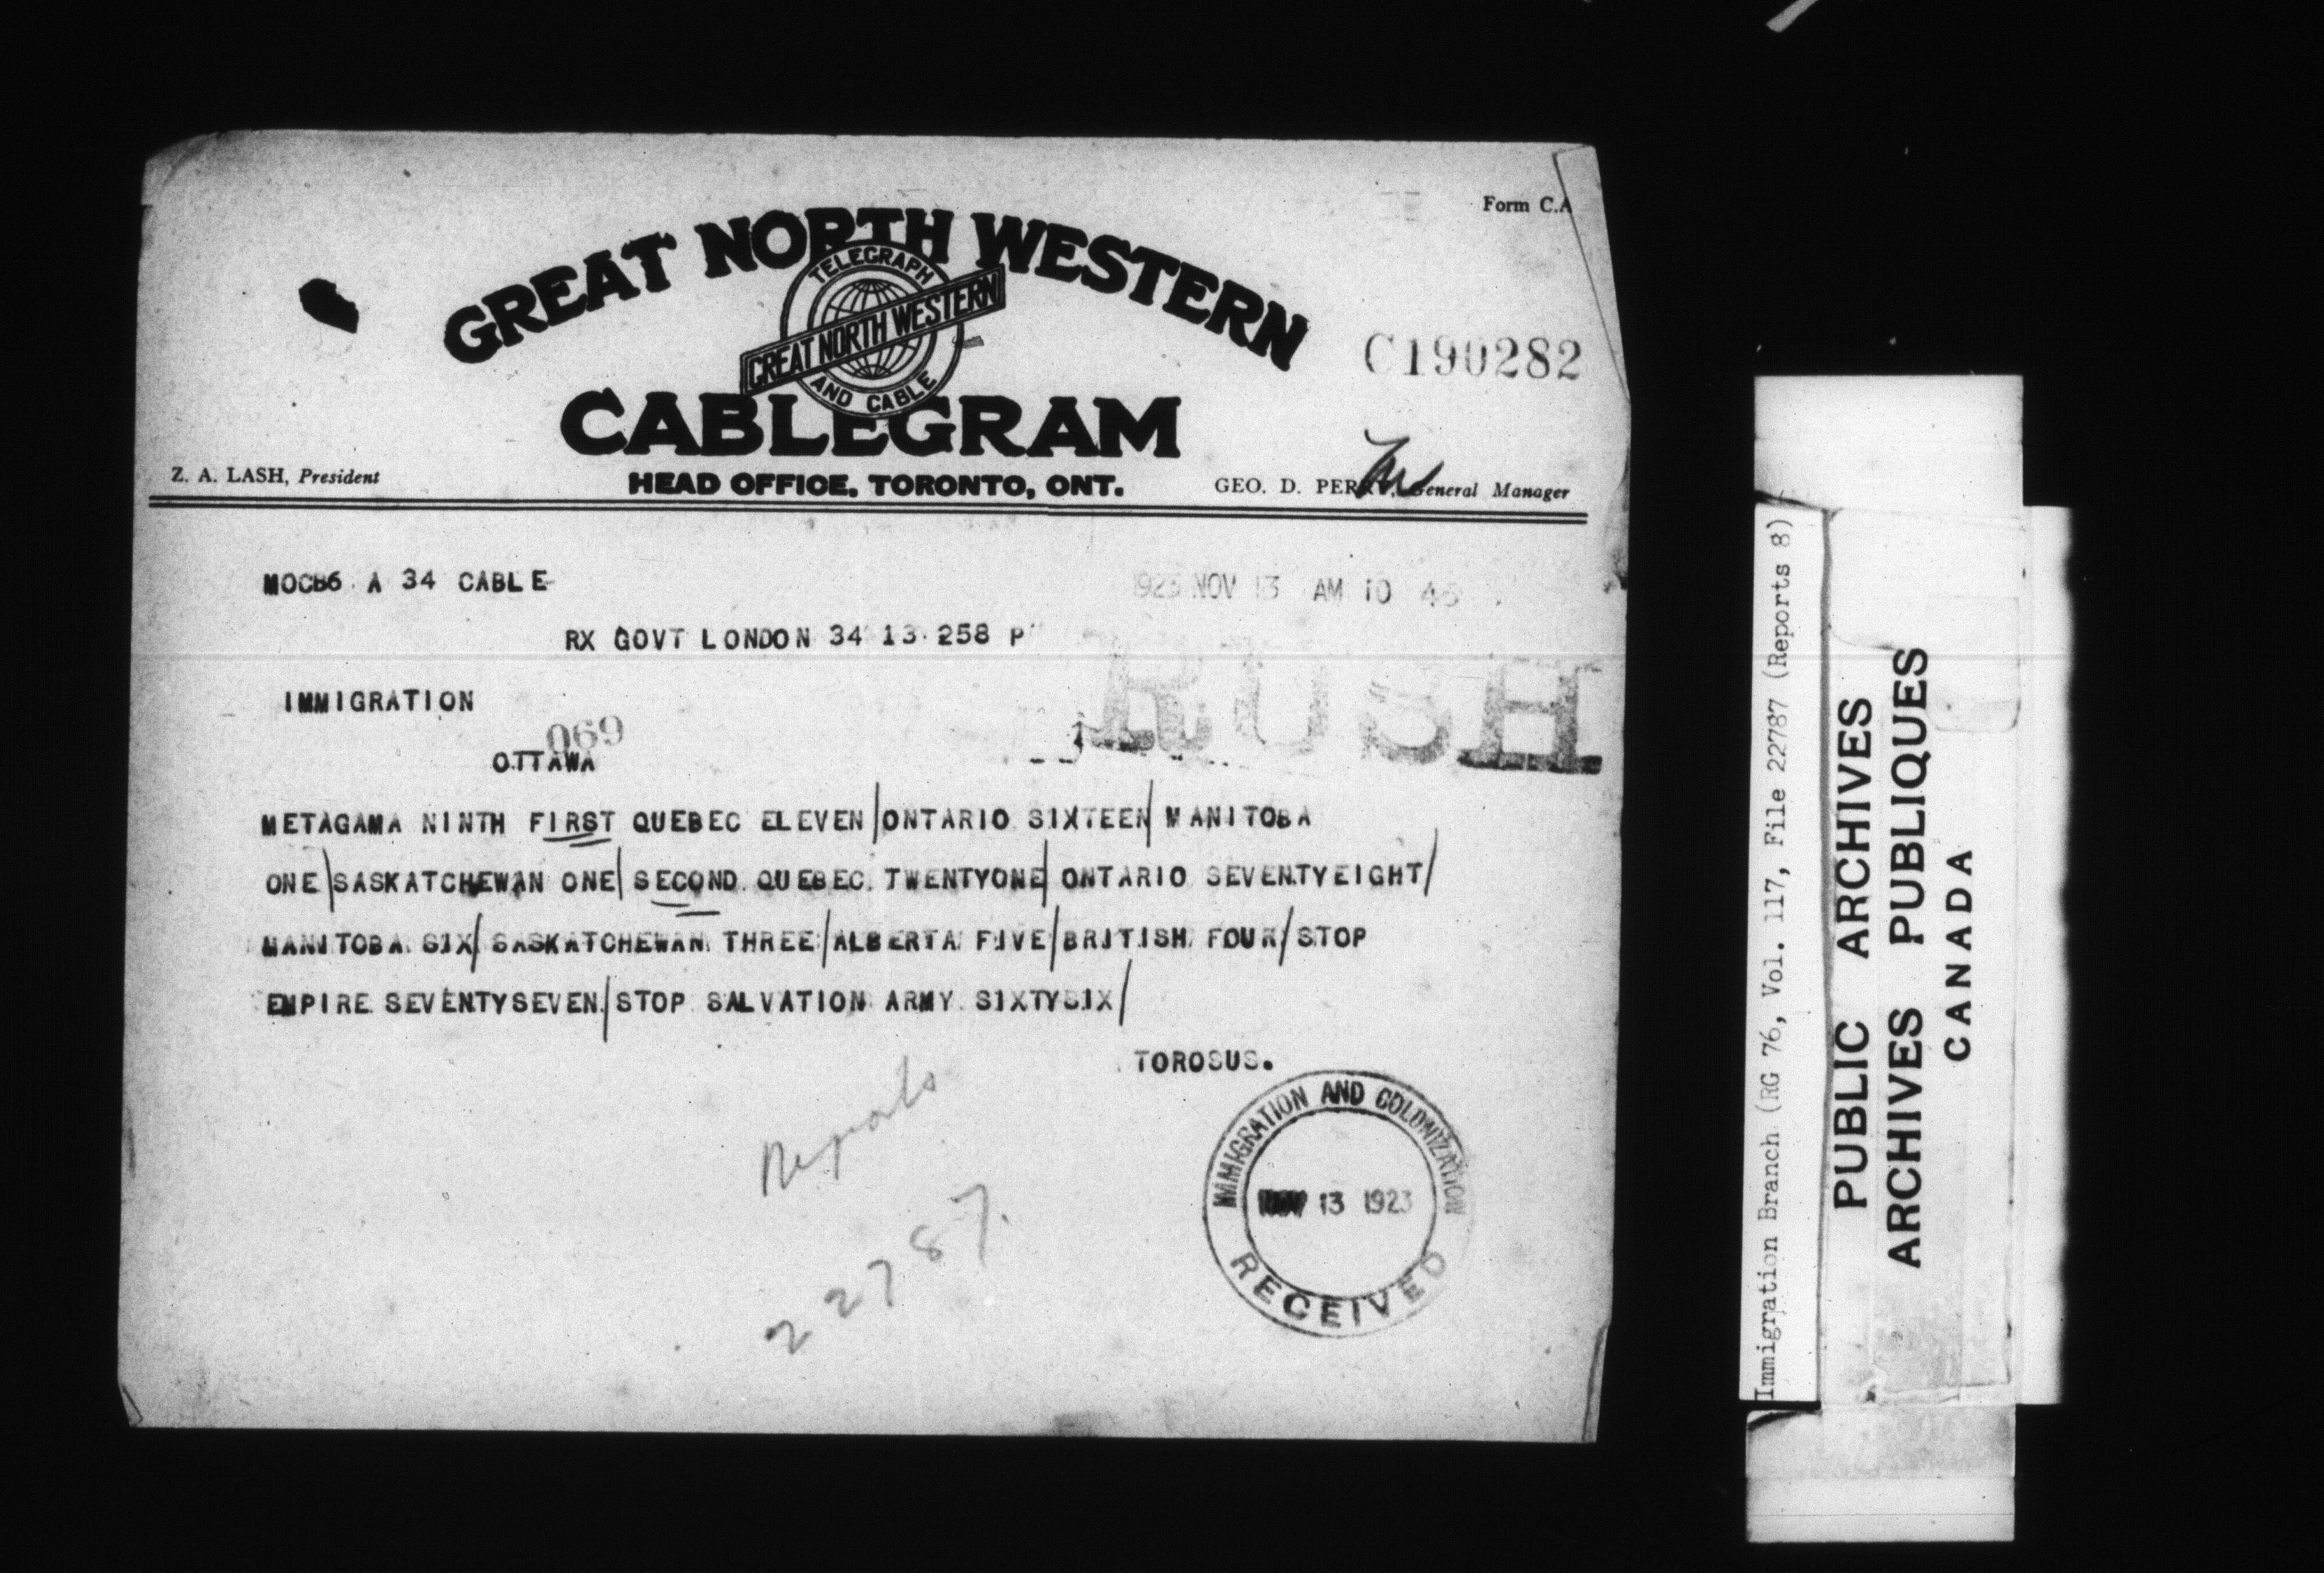 Form C.A
GREAT NORTH WESTERN
TELEGRAPH
GREAT NORTH WESTERN
AND CABLE
C190282
CABLEGRAM
Z. A. LASH, President
HEAD OFFICE, TORONTO, ONT.
GEO. D. PERRY, General Manager
MOCB6 A 34 CABLE
1923 NOV 13 AM 10 46
RX GOVT LONDON 34 13 258 P
RUSH
IMMIGRATION
069
OTTAWA
METAGAMA NINTH FIRST QUEBEC ELEVEN/ONTARIO SIXTEEN/MANITOBA
ONE/SASKATCHEWAN ONE/SECOND QUEBEC TWENTYONE/ONTARIO SEVENTYEIGHT/
MANITOBA SIX/SASKATCHEWAN THREE/ALBERTA FIVE/BRITISH FOUR/STOP
EMPIRE SEVENTYSEVEN/STOP SALVATION ARMY SIXTYSIX/
TOROSUS.
Reports
22787.
IMMIGRATION AND COLONIZATION
NOV 13 1923
RECEIVED
Immigration Branch (RG 76, Vol. 117, File 22787 (Reports 8)
PUBLIC ARCHIVES
ARCHIVES PUBLIQUES
CANADA